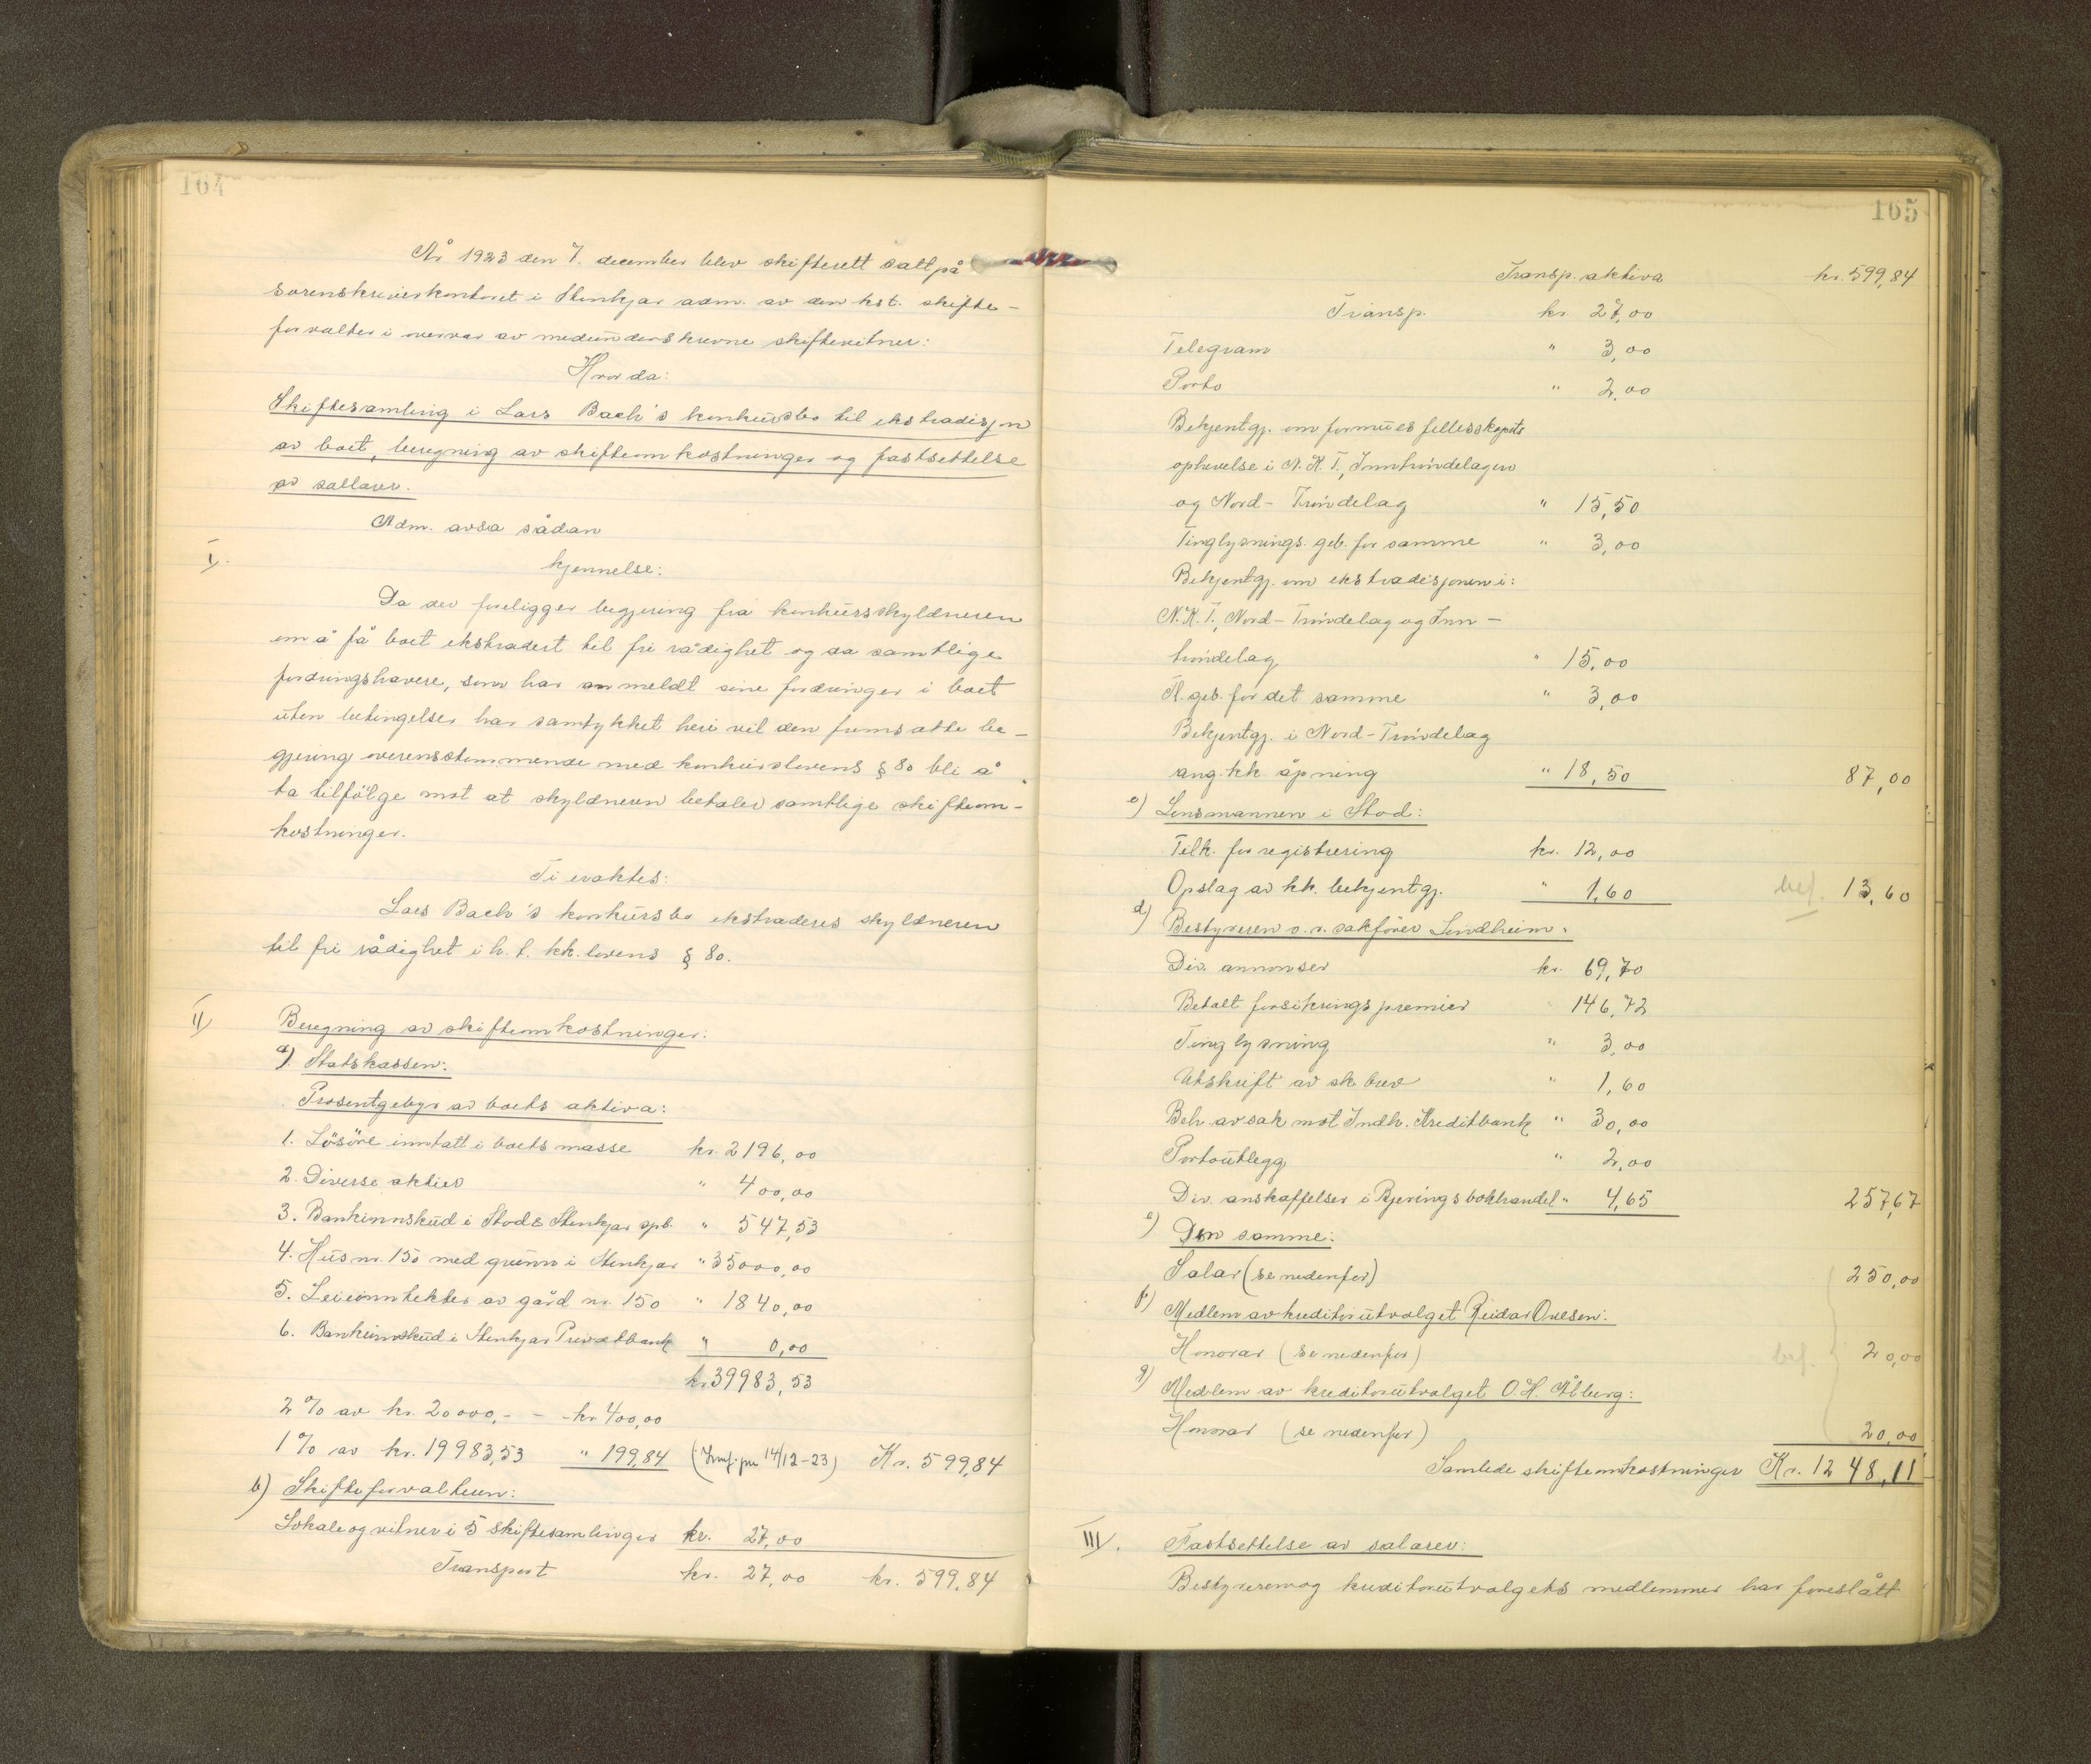 164
År 1923 den 7. december blev skifterett satt på
sorenskriverkontoret i Stenkjær adm. av den kst. skifte-
forvalter i overvær av medunderskrevne skiftevitner:
Hvor da:
Skiftesamling i Lars Bach's konkursbo til ekstradisjon
av boet, beregning av skifteomkostninger og fastsettelse
av sallarer.
Adm. avsa sådan
I.
kjennelse:
Da der foreligger begjæring fra konkursskyldneren
om å få boet ekstradert til fri rådighet og da samtlige
fordringshavere, som har anmeldt sine fordringer i boet
uten betingelser har samtykket heri vil den fremsatte be-
gjæring overensstemmende med konkurslovens § 80 bli å
ta tilfölge mot at skyldneren betaler samtlige skifteom-
kostninger.
Ti eraktes:
Lars Bach's konkursbo ekstraderes skyldneren
til fri rådighet i h. t. kk. lovens § 80.
II) Beregning av skifteomkostninger:
a) Statskassen:
Prosentgebyr av boets aktiva:
1. Lösöre inntatt i boets masse kr. 2196,00
2. Diverse aktier " 400,00
3. Bankinnskud i Stod & Stenkjær spb. " 547,53
4. Hus nr. 150 med grunn i Stenkjær " 35000,00
5. Leieinntekter av gård nr. 150 " 1840,00
6. Bankinnskud i Stenkjær Privatbank " 0,00
kr. 39983,53
2 % av kr. 20000,- - - kr. 400,00
1 % av kr. 19983,53 " 199,84 ( 14/12-23) Kr. 599,84
b) Skifteforvalteren:
Lokale og vitner i 5 skiftesamlinger kr. 27,00
Transport kr. 27,00 kr. 599,84
165
Transp. aktiva kr. 599,84
Transp. kr. 27,00
Telegram " 3,00
Porto " 2,00
Bekjentgj. om formuesfellesskapets
ophevelse i N. K. T., Inntröndelagen
og Nord-Tröndelag " 15,50
Tinglysnings. geb. for samme " 3,00
Bekjentgj. om ekstradisjonen i:
N. K. T., Nord-Tröndelag og Inn-
tröndelag " 15,00
Tl. geb. for det samme " 3,00
Bekjentgj. i Nord-Tröndelag
ang. kk. åpning " 18,50 87,00
c) Lensmannen i Stod:
Tilk. for registrering kr. 12,00
Opslag av kk. bekjentgj. " 1,60 bet. 13,60
d) Bestyreren o. r. sakförer Lindheim:
Div. annonser kr. 69,70
Betalt forsikringspremier " 146,72
Tinglysning " 3,00
Utskrift av sk. brev " 1,60
Beh. av sak mot Indh. Kreditbank " 30,00
Portoutlegg " 2,00
Div. anskaffelser i Bjerings bokhandel " 4,65 257,67
e) Den samme:
Salar (se nedenfor) 250,00
f) Medlem av kreditorutvalget Reidar Ovesen:
Honorar (se nedenfor) bet. 20,00
g) Medlem av kreditorutvalget O. H. Ålberg:
Honorar (se nedenfor) 20,00
Samlede skifteomkostninger Kr. 1248,11
III). Fastsettelse av salarer:
Bestyreren og kreditorutvalgets medlemmer har foreslått